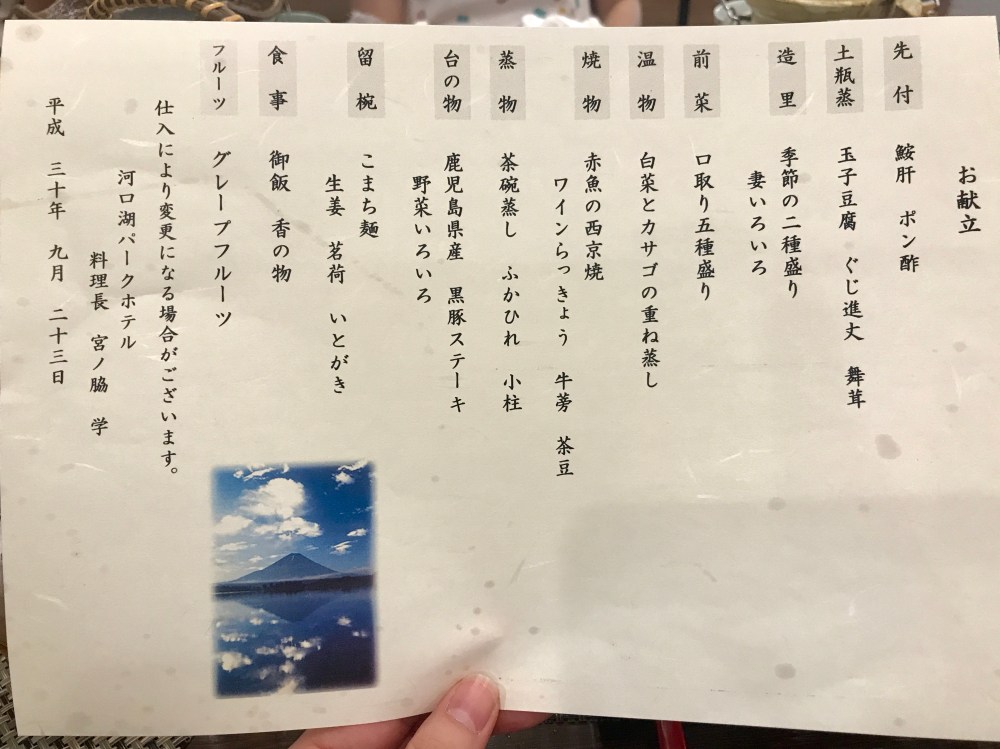 お献立
先付 鮟肝 ポン酢
土瓶蒸 玉子豆腐 ぐじ進丈 舞茸
造里 季節の二種盛り
妻いろいろ
前菜 口取り五種盛り
温物 白菜とカサゴの重ね蒸し
焼物 赤魚の西京焼
ワインらっきょう 牛蒡 茶豆
蒸物 茶碗蒸し ふかひれ 小柱
台の物 鹿児島県産 黒豚ステーキ
野菜いろいろ
留椀 こまち麺
生姜 茗荷 いとがき
食事 御飯 香の物
フルーツ グレープフルーツ
仕入により変更になる場合がございます。
河口湖パークホテル
料理長 宮ノ脇 学
平成 三十年 九月 二十三日